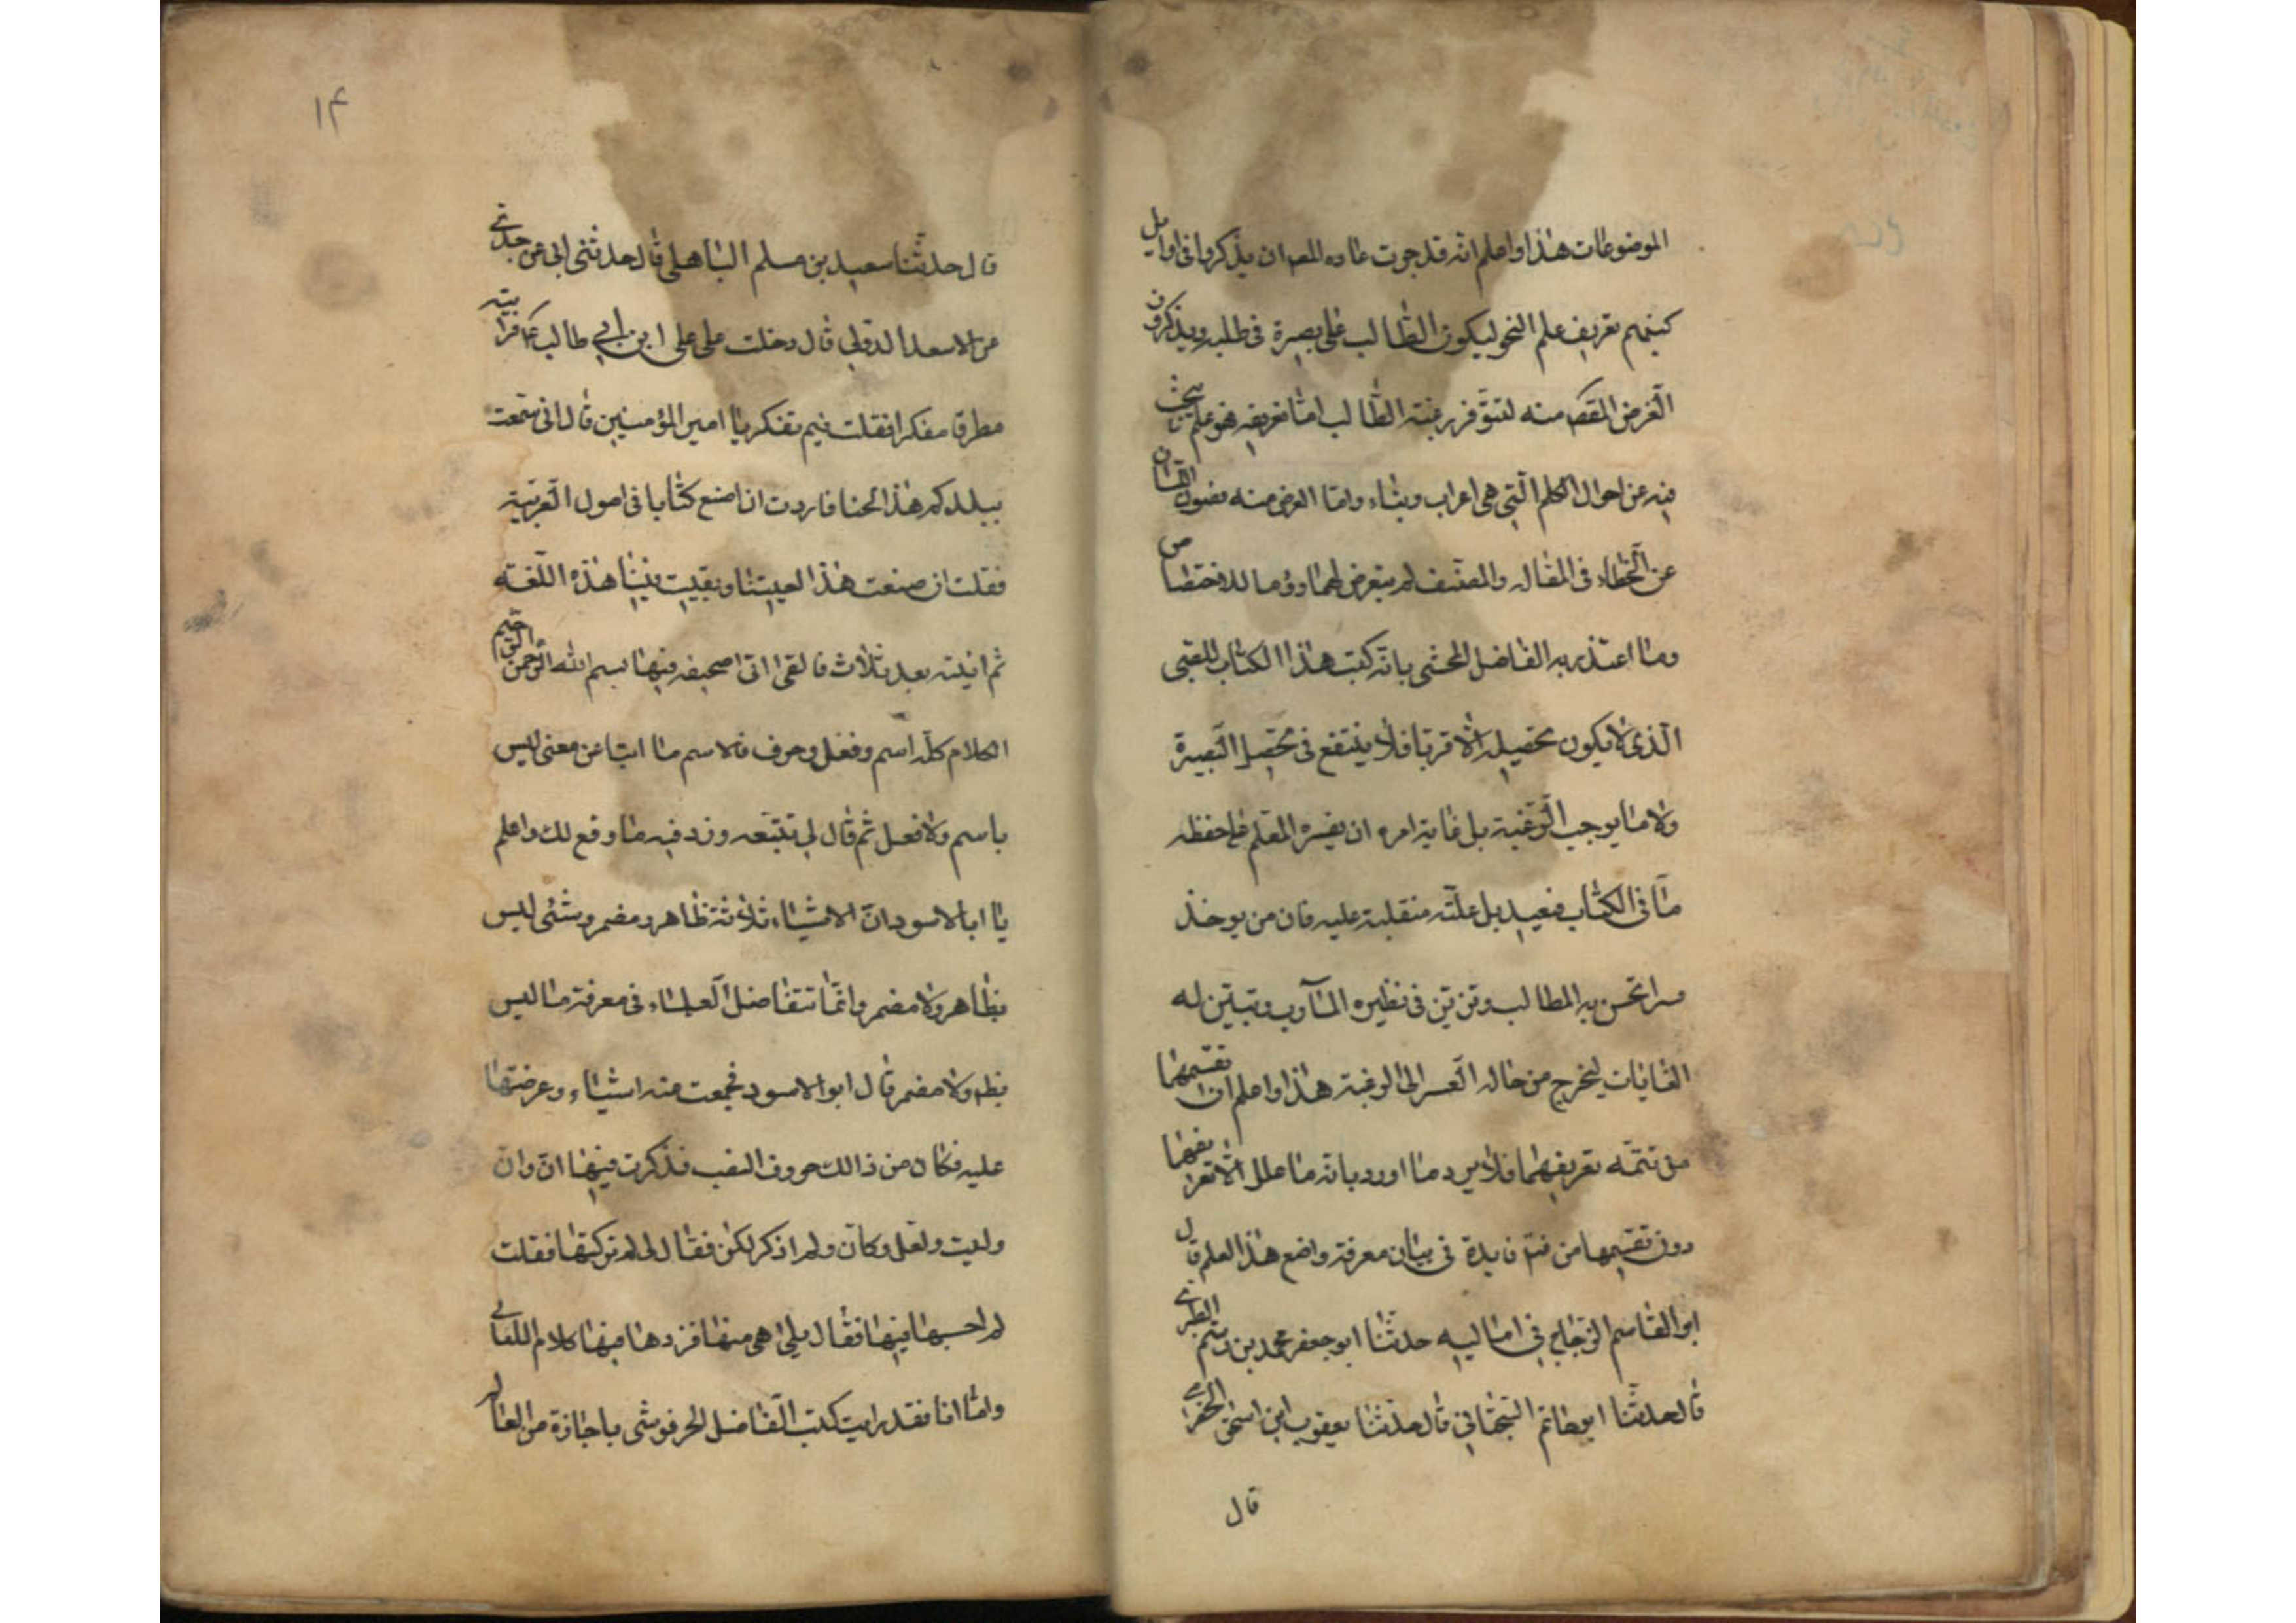 الموضوعات هذا واعلم انه قد جرت عاده ان يذكروا فى اوايل
كتبهم تعريف علم النحو ليكون الطالب على بصيرة فى طلبه ويذكرون
الغرض المقص منه لتتوفر رغبته الطالب امّا تعريفه فهو علم يبحث
فيه عن احوال الكلم الّتى هى اعراب وبناء وامّا الغرض منه فصون اللسان
عن الخطاء فى المقاله والمصنّف لم يتعرض لهما للاختصاص
وما اعتذر به الفاضل المحشى بانّه كتب هذا الكتاب للصّبى
الّذى لا يكون تحصيله الّا قربا فلا ينتفع فى تحصيل البصيرة
ولا ما يوجب الرّغبة بل غاية امره ان يفسره المعلم على حفظه
ما فى الكتاب فبعيد بل علّته منقلبة عليه فان من يوخذ
قسرا تحسن به المطالب وتزيّن فى نظره المآرب وتبيّن له
الغايات ليخرج من حاله القسر الى الرغبة هذا واعلم ان تقسيمهما
من تتمّه تعريفهما فلا يرد ما اورد بانّه ما علل الّا تعريفهما
دون تقسيمها من فايدة فى بيان معرفة واضع هذا العلم قال
ابو القاسم الزجاجى فى اماليه حدثنا ابو جعفر محمد بن رستم الطبرى
قال حدثنا ابو حاتم السّجستانى قال حدثنا يعقوب ابن اسحق الحضرمى
قال
١٤
قال حدثنا سعيد بن مسلم الباهلى قال حدثنى ابى عن جدّى
عن الاسعد الدؤلى قال دخلت على على ابن ابى طالب ع فرايته
مطرقا مفكرا فقلت فيم تفكر يا امير المؤمنين قال انى سمعت
ببلدكم هذا لحنا فاردت ان اصنع كتابا فى اصول العربيّة
فقلت ان صنعت هذا احييتنا وبقيت فينا هذه اللّغة
ثم اتيته بعد ثلاث فالقى الىّ صحيفه فيها بسم الله الرّحمن الرّحيم
الكلام كلّه اسم وفعل وحرف فالاسم ما انبا عن معنى ليس
باسم ولا فعل ثم قال لى تتبّعه وزد فيه ما وقع لك واعلم
يا ابا الاسود انّ الاشياء ثلاثة ظاهر ومضمر وشئى ليس
بظاهر ولا مضمر وانّما تتفاضل العلماء فى معرفة ما ليس
بظ ولا مضمر قال ابو الاسود فجمعت منه اشياء وعرضتها
عليه فكان من ذالك حروف النصب فذكرت فيها انّ وان
وليت ولعل وكانّ ولم اذكر لكن فقال لى لم تركتها فقلت
لم احسبها فيها فقال بلى هى منها فزدها فيها كلام اللقانى
وامّا انا فقد رايت كتب الفاضل الحرفوشى باجازة من العالم